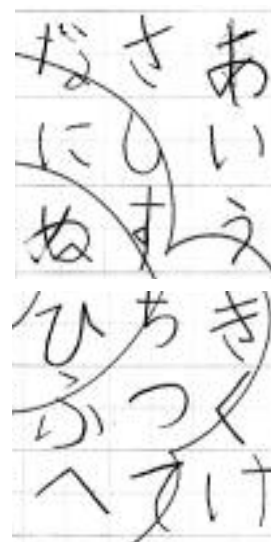 あいう
さしす
なにぬ
きくけ
ちつて
ひふへ